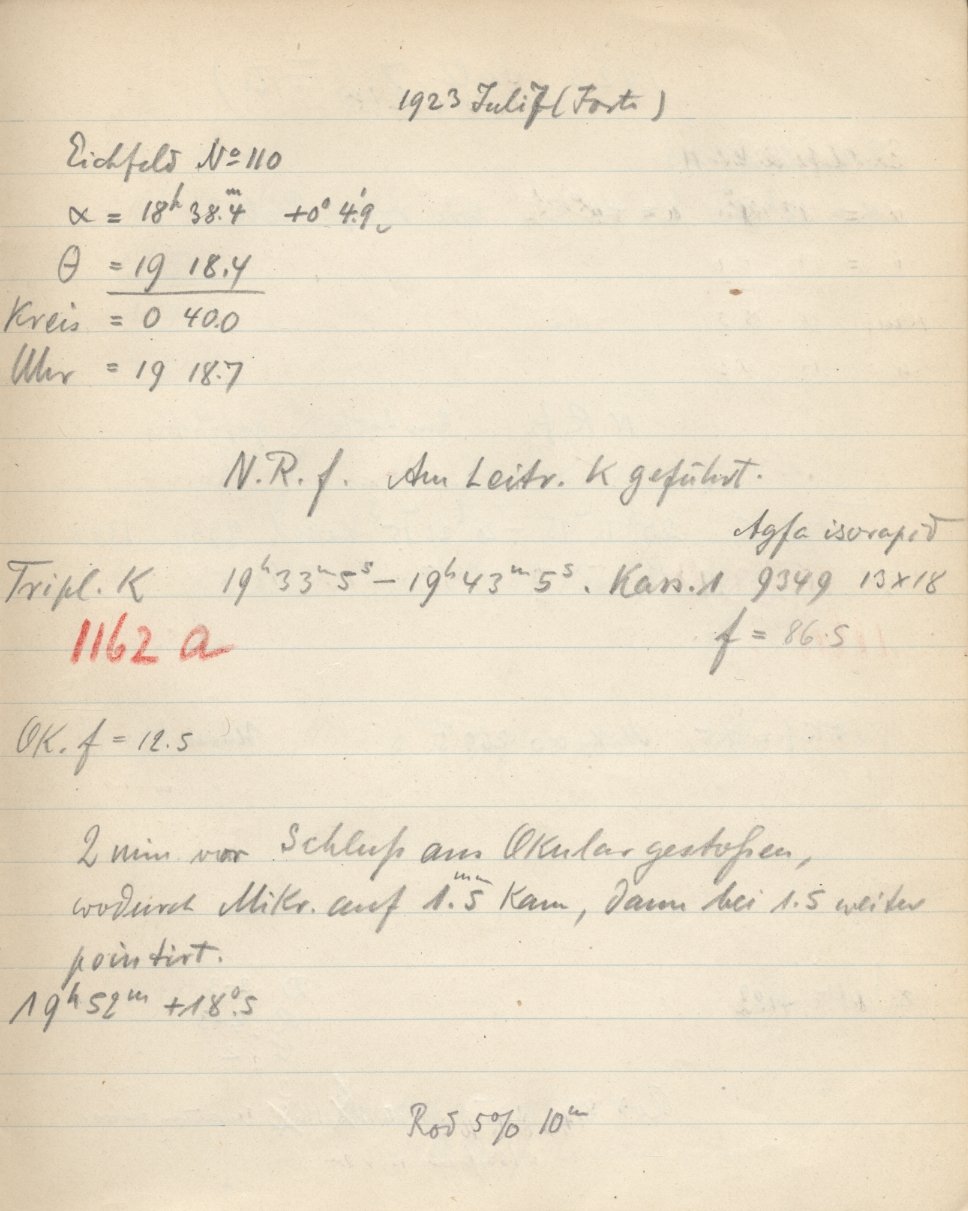 1923 Juli 7 (Forts.)
Eichfeld Nº 110
α = 18ʰ 38.ᵐ4 +0° 4.'9
θ = 19 18.4
Kreis = 0 40.0
Uhr = 19 18.7
N.R.f. Am Leitr. K geführt.
Agfa isorapid
Tripl. K 19ʰ33ᵐ5ˢ – 19ʰ43ᵐ5ˢ. Kass. 1 9349 13×18
1162 a
f = 86.5
OK. f = 12.5
2 min vor Schluß ans Okular gestoßen,
wodurch Mikr. auf 1.ᵐᵐ5 kam, dann bei 1.5 weiter
pointirt.
19ʰ52ᵐ +18°.5
Rod 5% 10ᵐ